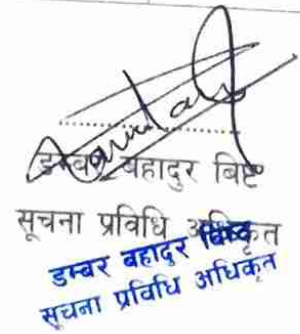 डम्बर बहादुर बिष्ट
सूचना प्रविधि अधिकृत
डम्बर बहादुर बिष्ट
सूचना प्रविधि अधिकृत